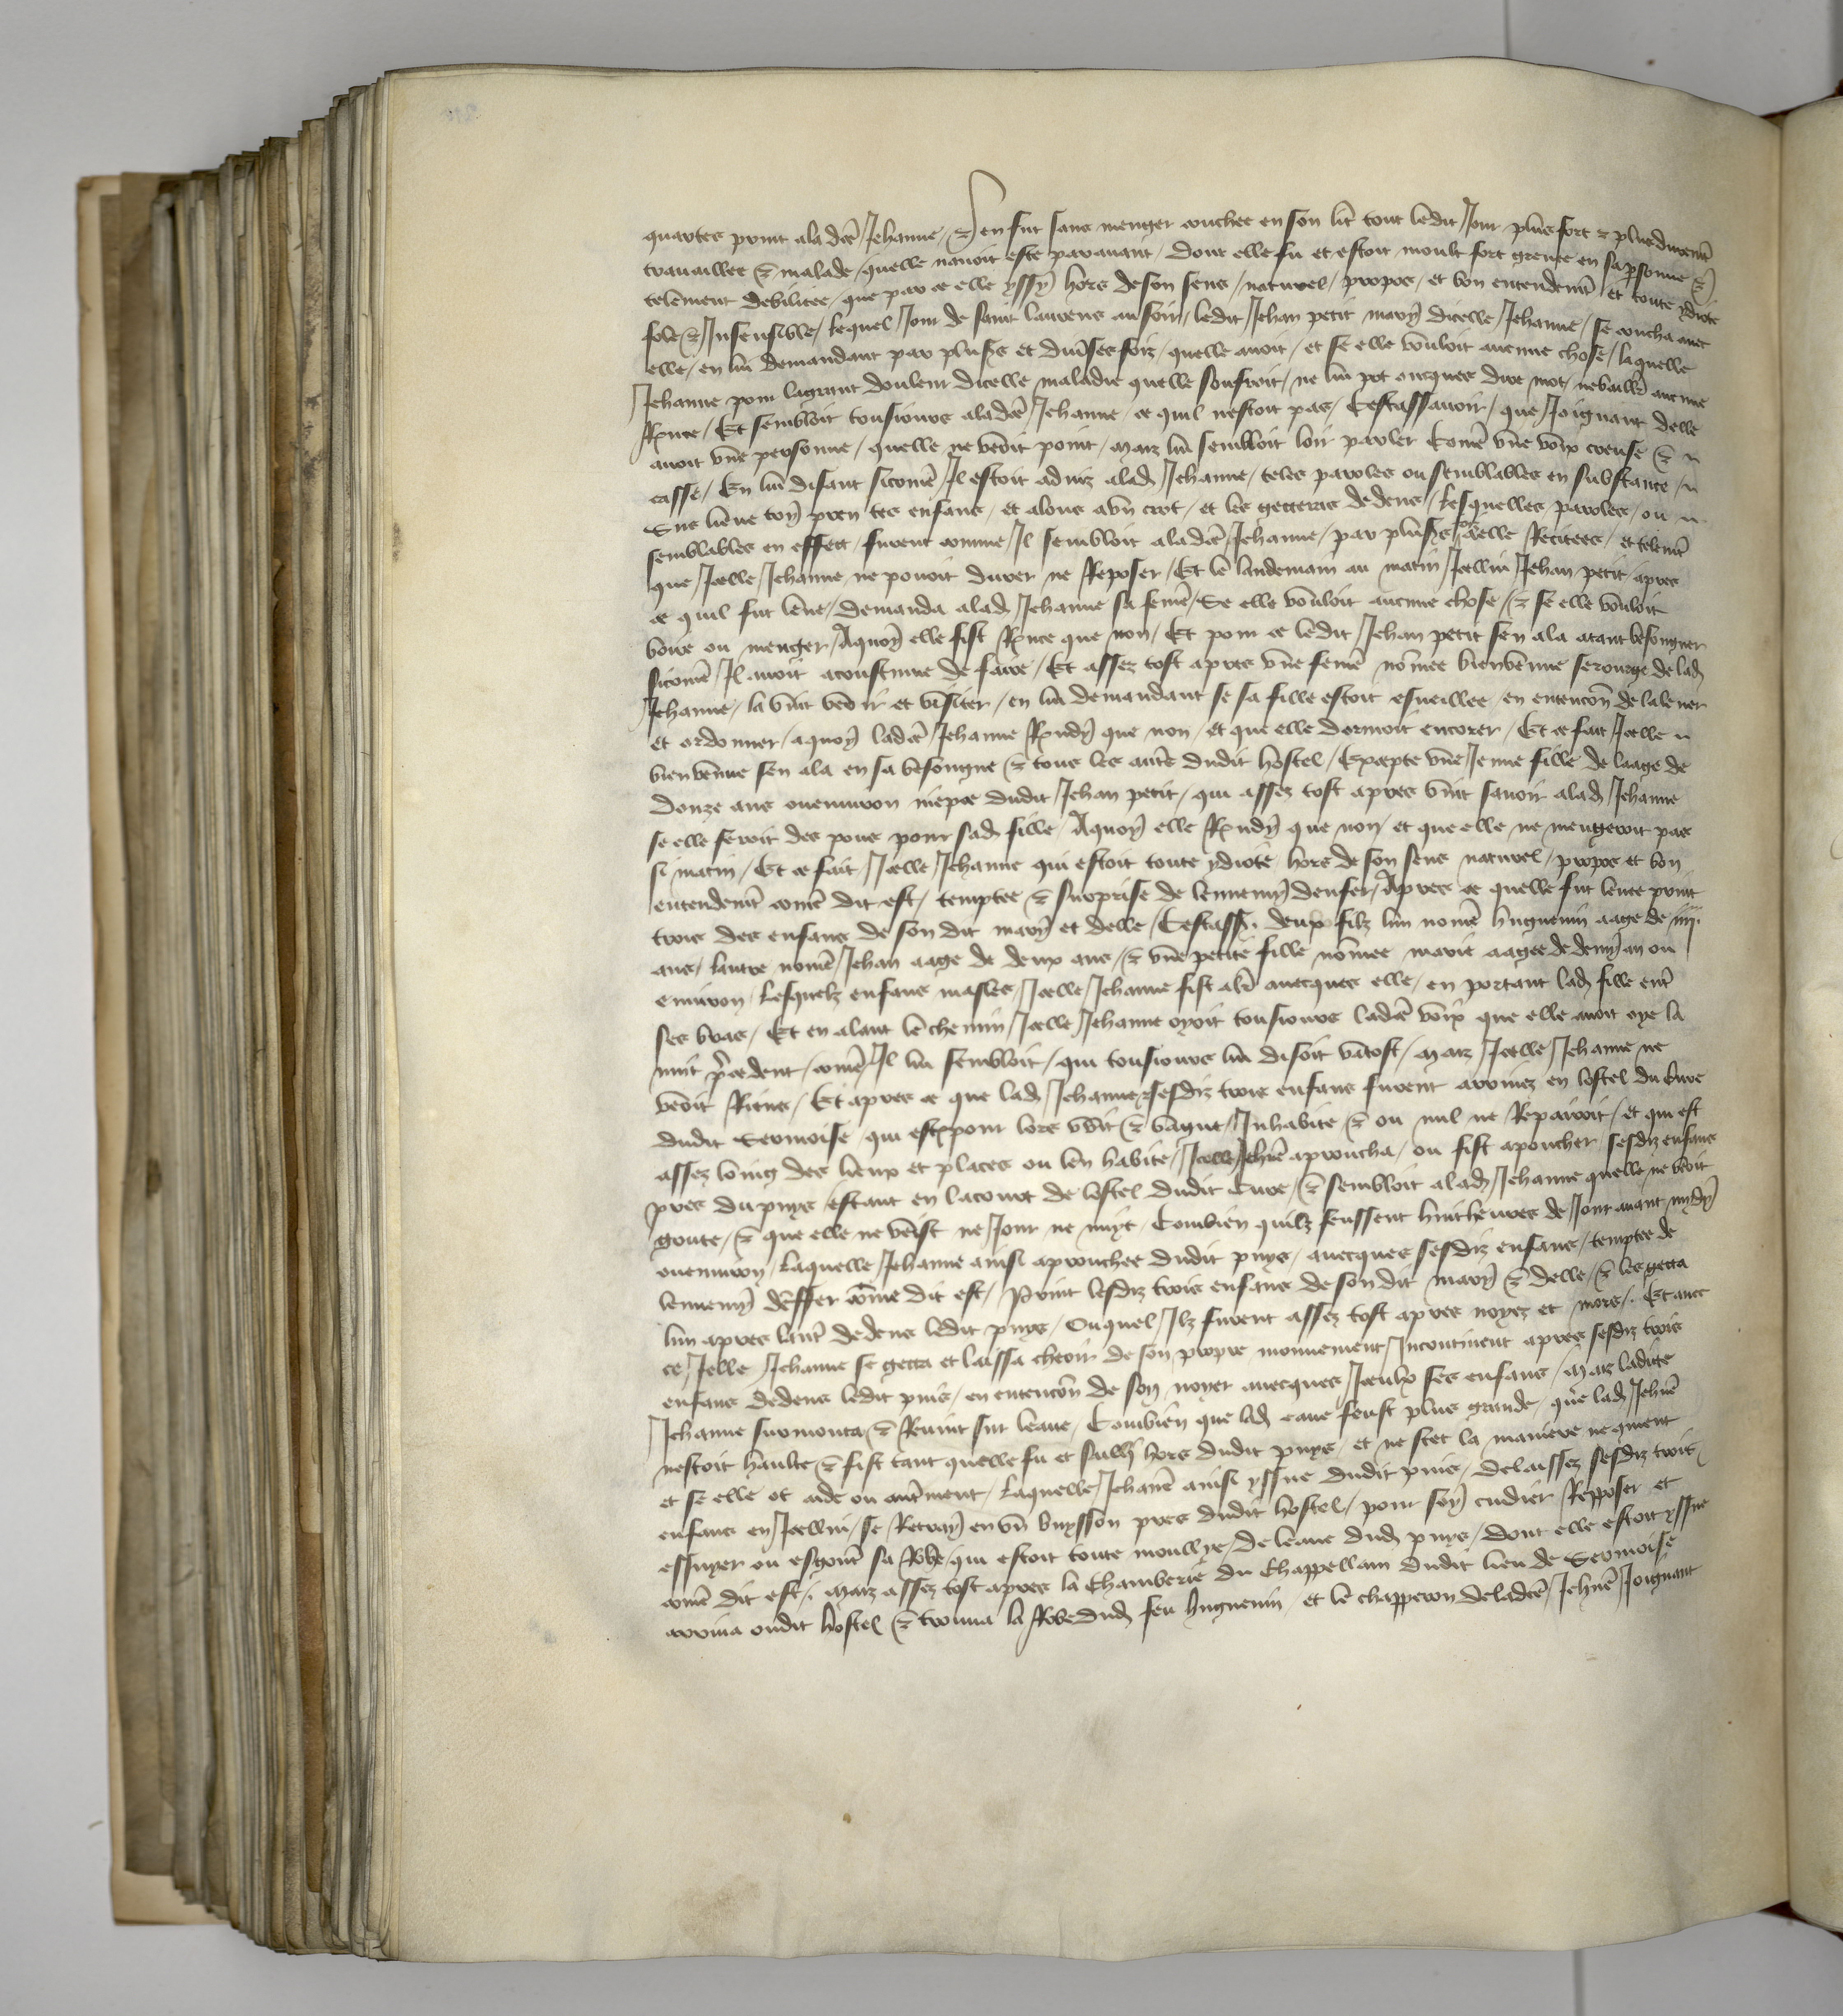 quartes print a la dce Jehanne / et en fut sans menger couchee en son lit tout ledit Jour plus fort et plus durement
travaillee et malade / quelle navoit este paravant / dont elle fu et estoit moult fort grevee en sa personne et
telement debilitee / que par ce elle yssy hors de son sens / naturel / propos / et bon entendemt et toute ydiote
fole et Insensible / lequel Jour de saint laurens au soir / ledit Jehan petit mary dicelle Jehanne / se coucha avec
elle / en lui demandant par plusrs et diverses foiz / quelle avoit / et se elle vouloit aucune chose / laquelle
Jehanne pour la grant douleur dicelle maladie quelle souffroit / ne lui pot oncques dire mot / ne baillr aucune
Rnce / Et sembloit tousiours a la dce Jehanne / ce quil nestoit pas / Cestassavoir / que Joignant delle
avoit une personne / quelle ne veoit point / Maiz lui sembloit loir parler Come une voix creuse et
casse / En lui disant sicome Il estoit adviz a lad Jehanne / teles paroles ou semblables en substance /
Sus lieve toy pren tes enfans / et alons a un crot / et les getteras dedens / Lesquelles paroles / ou
semblables en effect / furent comme Il sembloit a la dce Jehanne / par plusrs foiz a elle Recitees / et telemt
que Icelle Jehanne ne povoit durer ne Reposer / Et le landemain au matin Icellui Jehan petit apres
ce quil fut leve / demanda a lad Jehanne sa feme / Se elle vouloit aucune chose / et se elle vouloit
boire ou menger / Aquoy elle fist Rnce que non / Et pour ce ledit Jehan petit sen ala atant besongner
sicome Il avoit acoustume de faire / Et assez tost apres une feme nomee bienvenue serourge de lad
Jehanne / la vint veoir et visiter / en lui demandant se sa fille estoit esveillee / en entencon de la lever
et ordonner / aquoy ladce Jehanne Rndy que non / et que elle dormoit encores / Et ce fait Icelle
bienvenue sen ala en sa besongne et tous les autres dudit hostel / Excepte une Jeune fille de laage de
douze ans ou environ niepce dudit Jehan petit / qui assez tost apres vint savoir a lad Jehanne
se elle feroit des pous pour sad fille / Aquoy elle Rndy que non / et que elle ne mengeroit pas
si matin / Et ce fait Icelle Jehanne qui estoit toute ydiote hors de son sens naturel / propos et bon
entendemt come dit est / temptee et surprise de lennemy denfer / Apres ce quelle fut levee print
trois des enfans de son dit mary et delle / Cestassr deux filz lun nome huguenin aage de iiij
ans / lautre nome Jehan aage de deux ans / et une petite fille nomee marie aagee de demy an ou
environ / Lesquelz enfans masles Icelle Jehanne fist alr avecques elle / en portant lad fille entre
ses bras / Et en alant le chemin Icelle Jehanne oyoit tousiours ladce voix que elle avoit oye la
nuit precedent / come Il lui sembloit / qui tousiours lui disoit va tost / Maiz Icelle Jehanne ne
veoit Riens / Et apres ce que lad Jehanne et sesdiz trois enfans furent arrivez en lostel du cure
dudit Sermoise / qui est pour lors vuit et vague / Inhabite et ou nul ne Repairoit / et qui est
assez loing des lieux et places ou len habite / Icelle Jehnne aproucha / ou fist aproucher sesdiz enfans
pres du puys estant en la court de lostel dudit Cure / et sembloit a lad Jehanne quelle ne veoit
goute / et que elle ne veist ne Jour ne nuyt / Combien quilz feussent huit heures de Jour avant mydy
ou environ / Laquelle Jehanne ainsi aprouchee dudit puys / avecques sesdiz enfans / temptee de
lennemy denffer come dit est / Print lesdiz trois enfans de son dit mary et delle / et les getta
lun apres lautre dedens ledit puys / Ouquel Ilz furent assez tost apres noyez et mors / Et avec
ce Icelle Jehanne se getta et laissa cheoir de son propre mouvement Incontinent apres sesdiz trois
enfans dedens ledit puis / en entencon de soy noyer avecques Iceulx ses enfans / Maiz ladite
Jehanne surmonta et Revint sur leaue / Combien que lad eaue feust plus grande que lad Jehne
nestoit haulte et fist tant quelle fu et sailli hors dudit puys / et ne scet la maniere ne comment
et se elle ot aide ou autrement / Laquelle Jehanne ainsi yssue dudit puis / delaissez sesdiz trois
enfans en Icellui / se Retray en un buysson pres dudit hostel / pour soy cuidier Repposer et
essuyer ou esgouter sa Robe qui estoit toute moullye / de leaue dud puys / dont elle estoit yssue
come dit est / Maiz assez tost apres la Chamberiere du Chappellain dudit lieu de Sermoise
arriva oudit hostel et trouva la Robe dud feu huguenin / et le chapperon de ladce Jehne Joignant